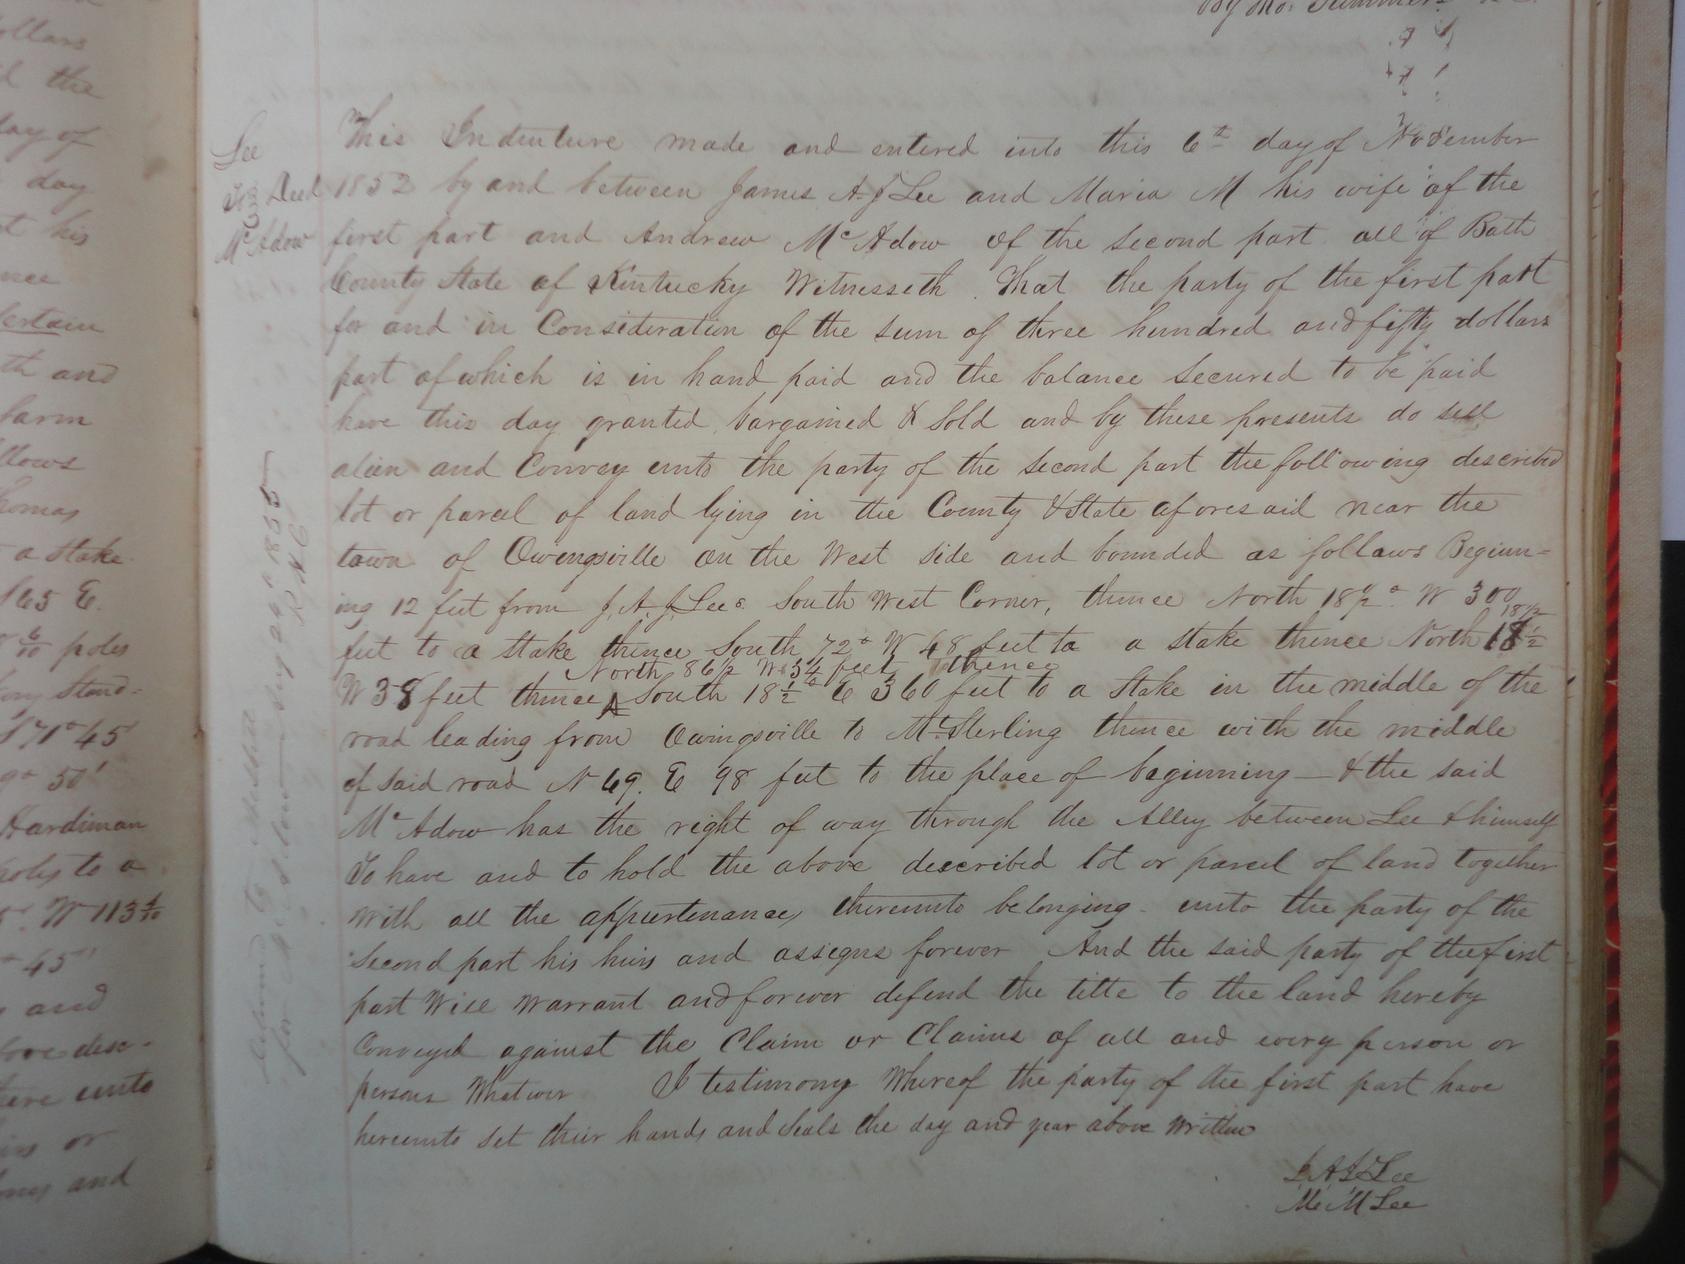 ollars
d the
day of
day
t his
nce
Certain
th and
farm
llows
homas
a Stake
S 65 E.
poles
Stand-
S 71° 45'
50'
Hardiman
poles to a
W 113 4/10
45'
and
above desc-
here unto
or
and
Lee
To Deed
McAdow
This Indenture made and entered into this 6th day of November
1852 by and between James A. J. Lee and Maria M his wife of the
first part and Andrew McAdow of the second part all of Bath
County State of Kentucky Witnesseth. That the party of the first part
for and in Consideration of the sum of three hundred and fifty dollars
part of which is in hand paid and the balance secured to be paid
have this day granted bargained & Sold and by these presents do sell
alien and Convey unto the party of the second part the following described
lot or parcel of land lying in the County & State aforesaid near the
town of Owingsville on the West side and bounded as follows Beginn=
ing 12 feet from J. A. J. Lees South West Corner, thence North 18 1/2° W 300
feet to a Stake thence South 72° W 48 feet to a stake thence North 18 1/2
18 1/2
North 86 1/2 W 34 feet thence
W 38 feet thence South 18 1/2° E 360 feet to a Stake in the middle of the
road leading from Owingsville to Mt Sterling thence with the middle
of said road N 69. E 98 feet to the place of beginning — & the said
McAdow has the right of way through the Alley between Lee & himself
To have and to hold the above described lot or parcel of land together
with all the appurtenances thereunto belonging unto the party of the
Second part his heirs and assigns forever And the said party of the first
part Will warrant and forever defend the title to the land hereby
Conveyed against the Claim or Claims of all and every person or
persons Whatever I testimony Whereof the party of the first part have
hereunto set their hands and Seals the day and year above Written
J. A. J. Lee
M. M Lee